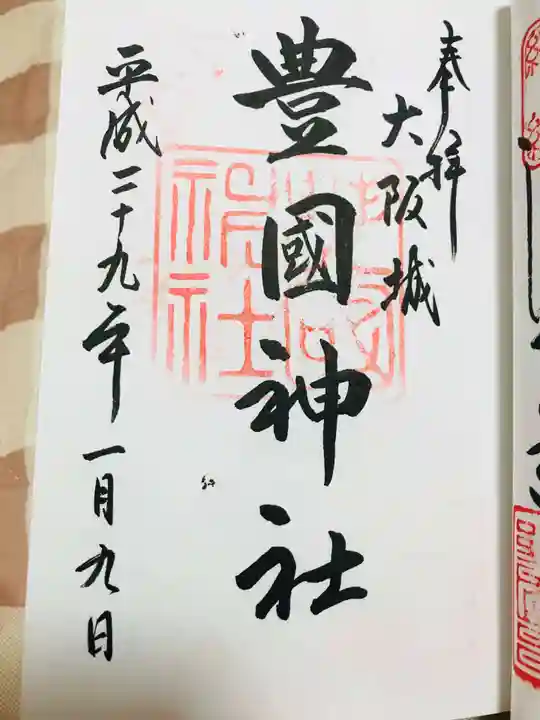 奉拝
大阪城
豊國神社
平成二十九年一月九日